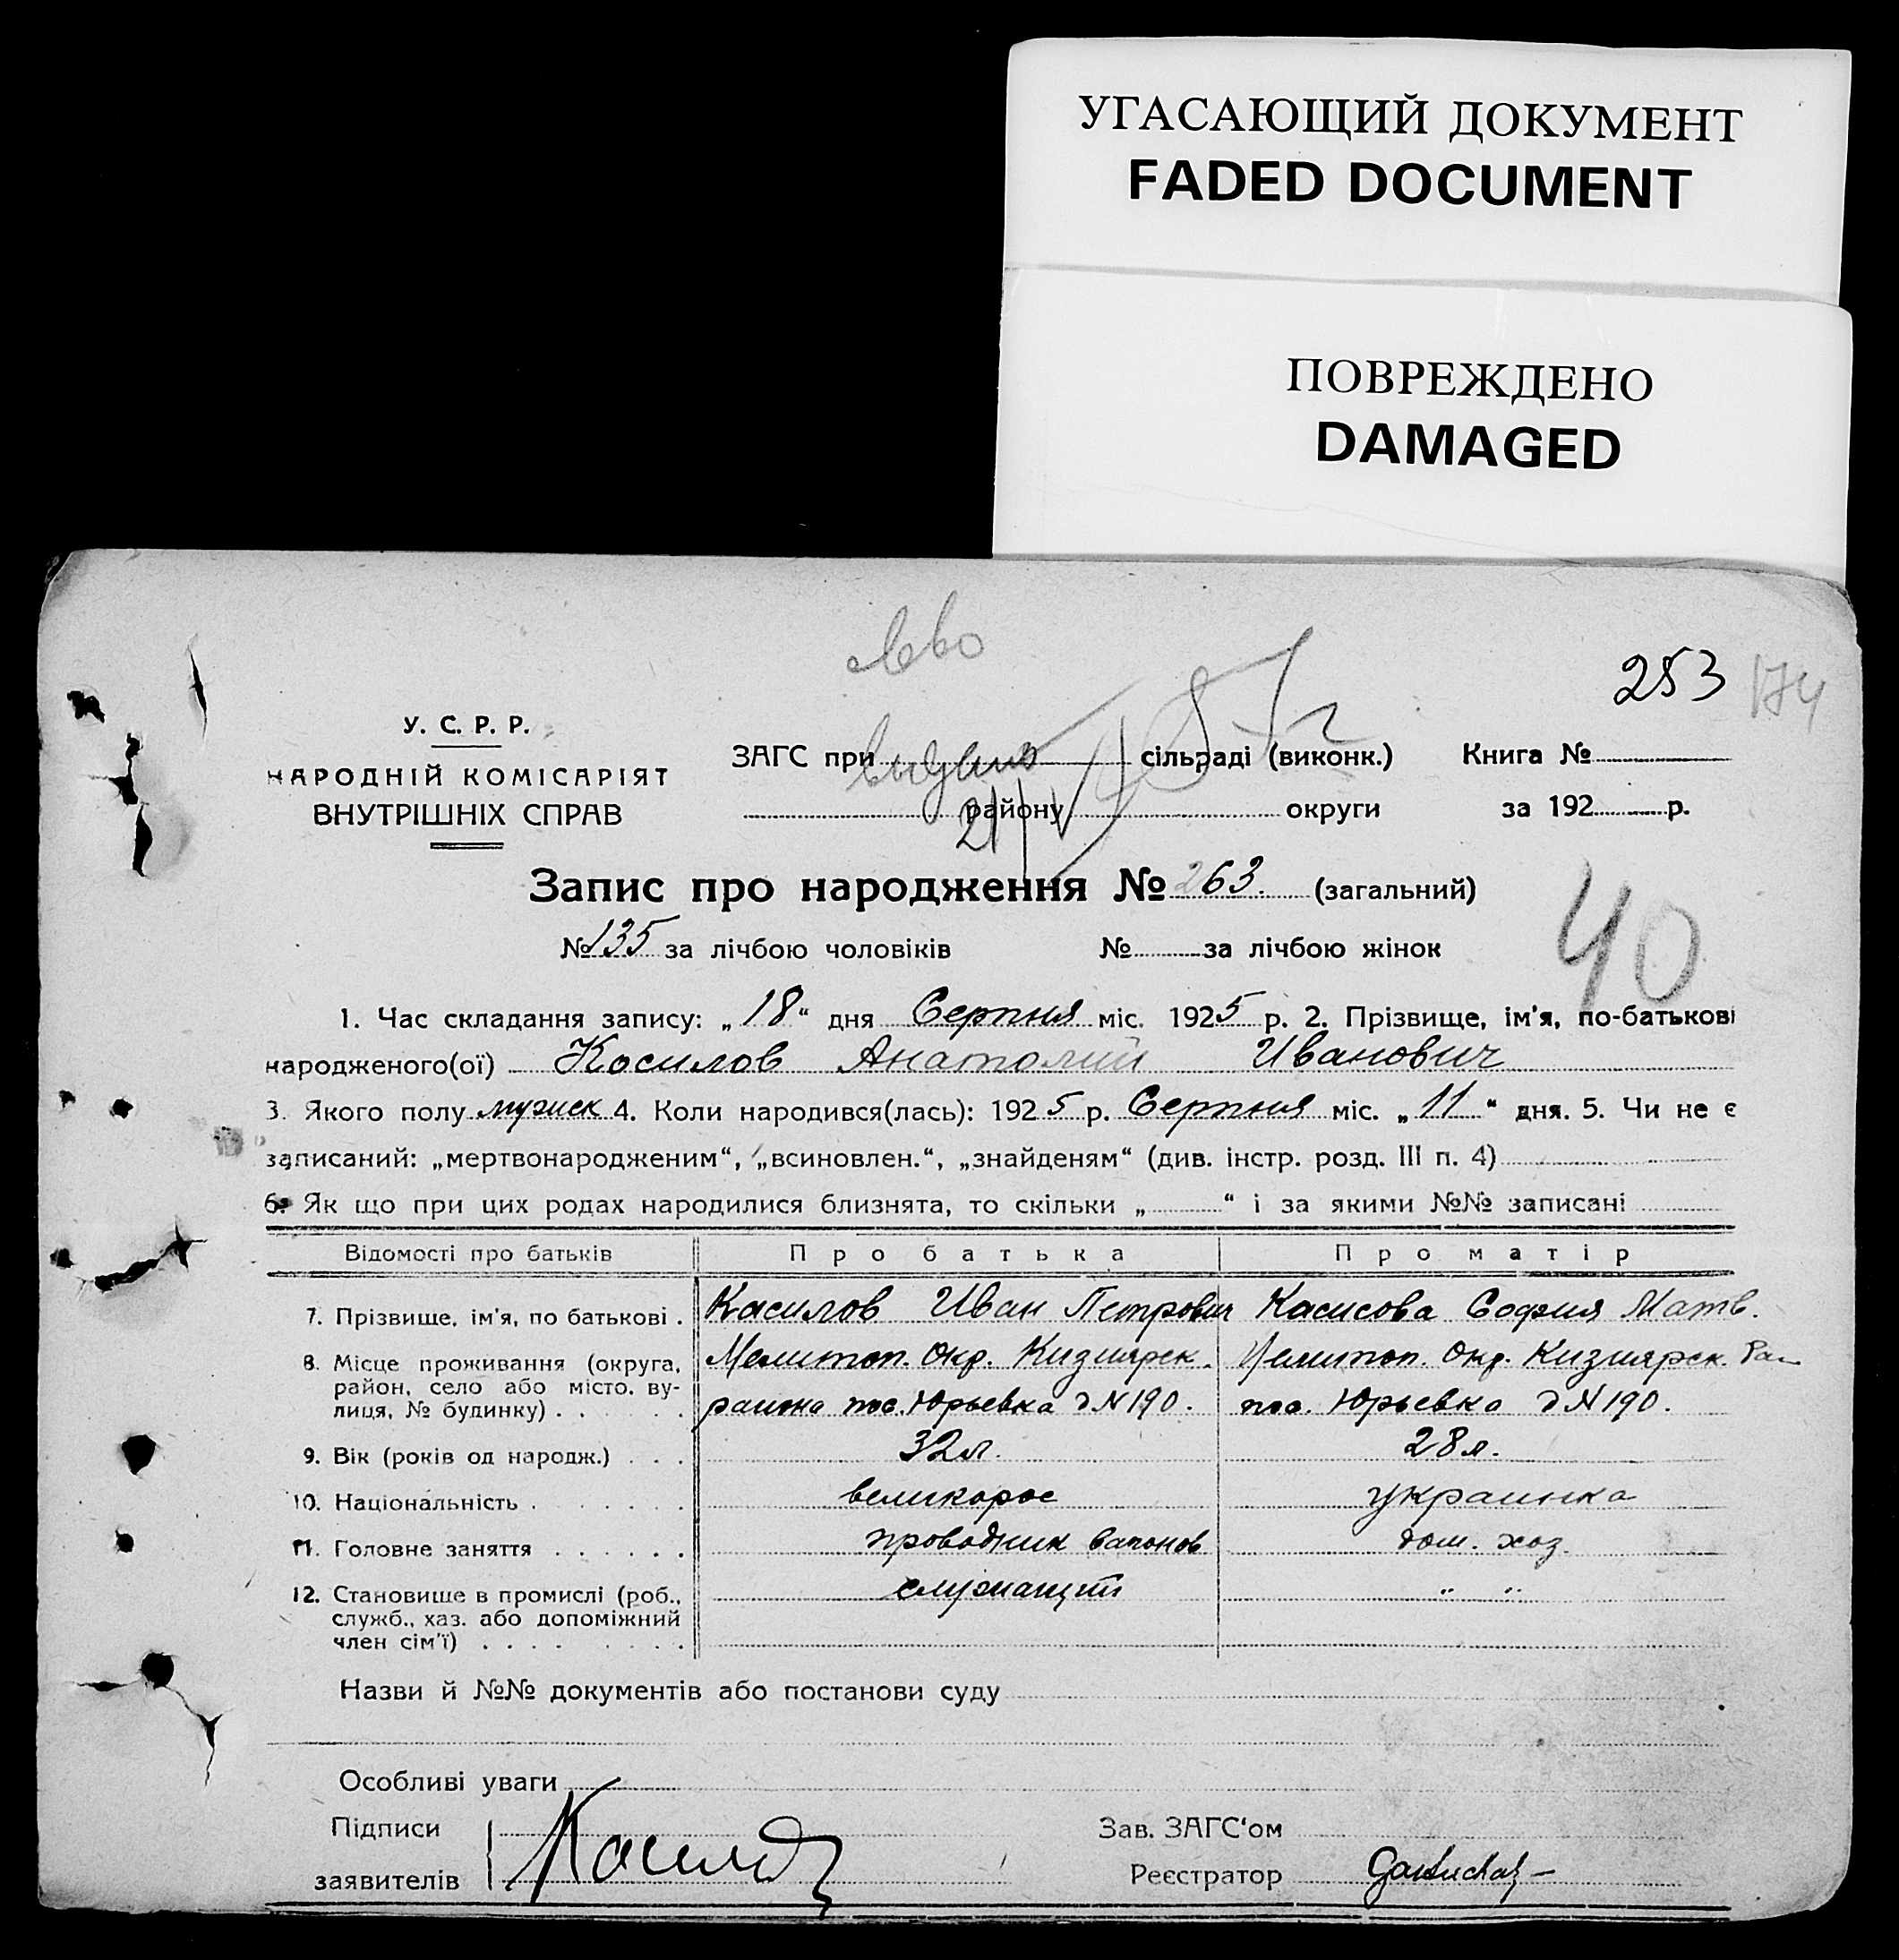 УГАСАЮЩИЙ ДОКУМЕНТ
FADED DOCUMENT
ПОВРЕЖДЕНО
DAMAGED
253 174
У. С. Р. Р.
НАРОДНІЙ КОМІСАРІЯТ
ВНУТРІШНІХ СПРАВ
ЗАГС при сільраді (виконк.) Книга №
району округи за 192 р.
Запис про народження № 263. (загальний)
40
№ 135 за лічбою чоловіків № за лічбою жінок
1. Час складання запису: „18“ дня Серпня міс. 1925 р. 2. Прізвище, ім'я, по-батькові
народженого(ої) Косилов Анатолий Иванович
3. Якого полу мужск 4. Коли народився(лась): 1925 р. Серпня міс. „11“ дня. 5. Чи не є
записаний: „мертвонародженим“, „всиновлен.“, „знайденям“ (див. інстр. розд. III п. 4)
6. Як що при цих родах народилися близнята, то скільки „ “ і за якими №№ записані
Відомості про батьків Про батька Про матір
7. Прізвище, ім'я, по батькові . Касилов Иван Петрович Касисова София Матв.
8. Місце проживання (округа, район, село або місто, ву-лиця, № будинку) Мелитоп. Окр. Кизиярск. района пос. Юрьевка д N 190. Мелитоп. Окр. Кизиярск. Ра пос. Юрьевка д N 190.
9. Вік (років од народж.) . . . 32 л. 28 л.
10. Національність великорос украинка
11. Головне заняття проводник вагонов дом. хоз.
12. Становище в промислі (роб., служб., хаз. або допоміжний член сім'ї) служащий " "
Назви й №№ документів або постанови суду
Особливі уваги
Підписи Зав. ЗАГС'ом
заявителів Касилов Реєстратор